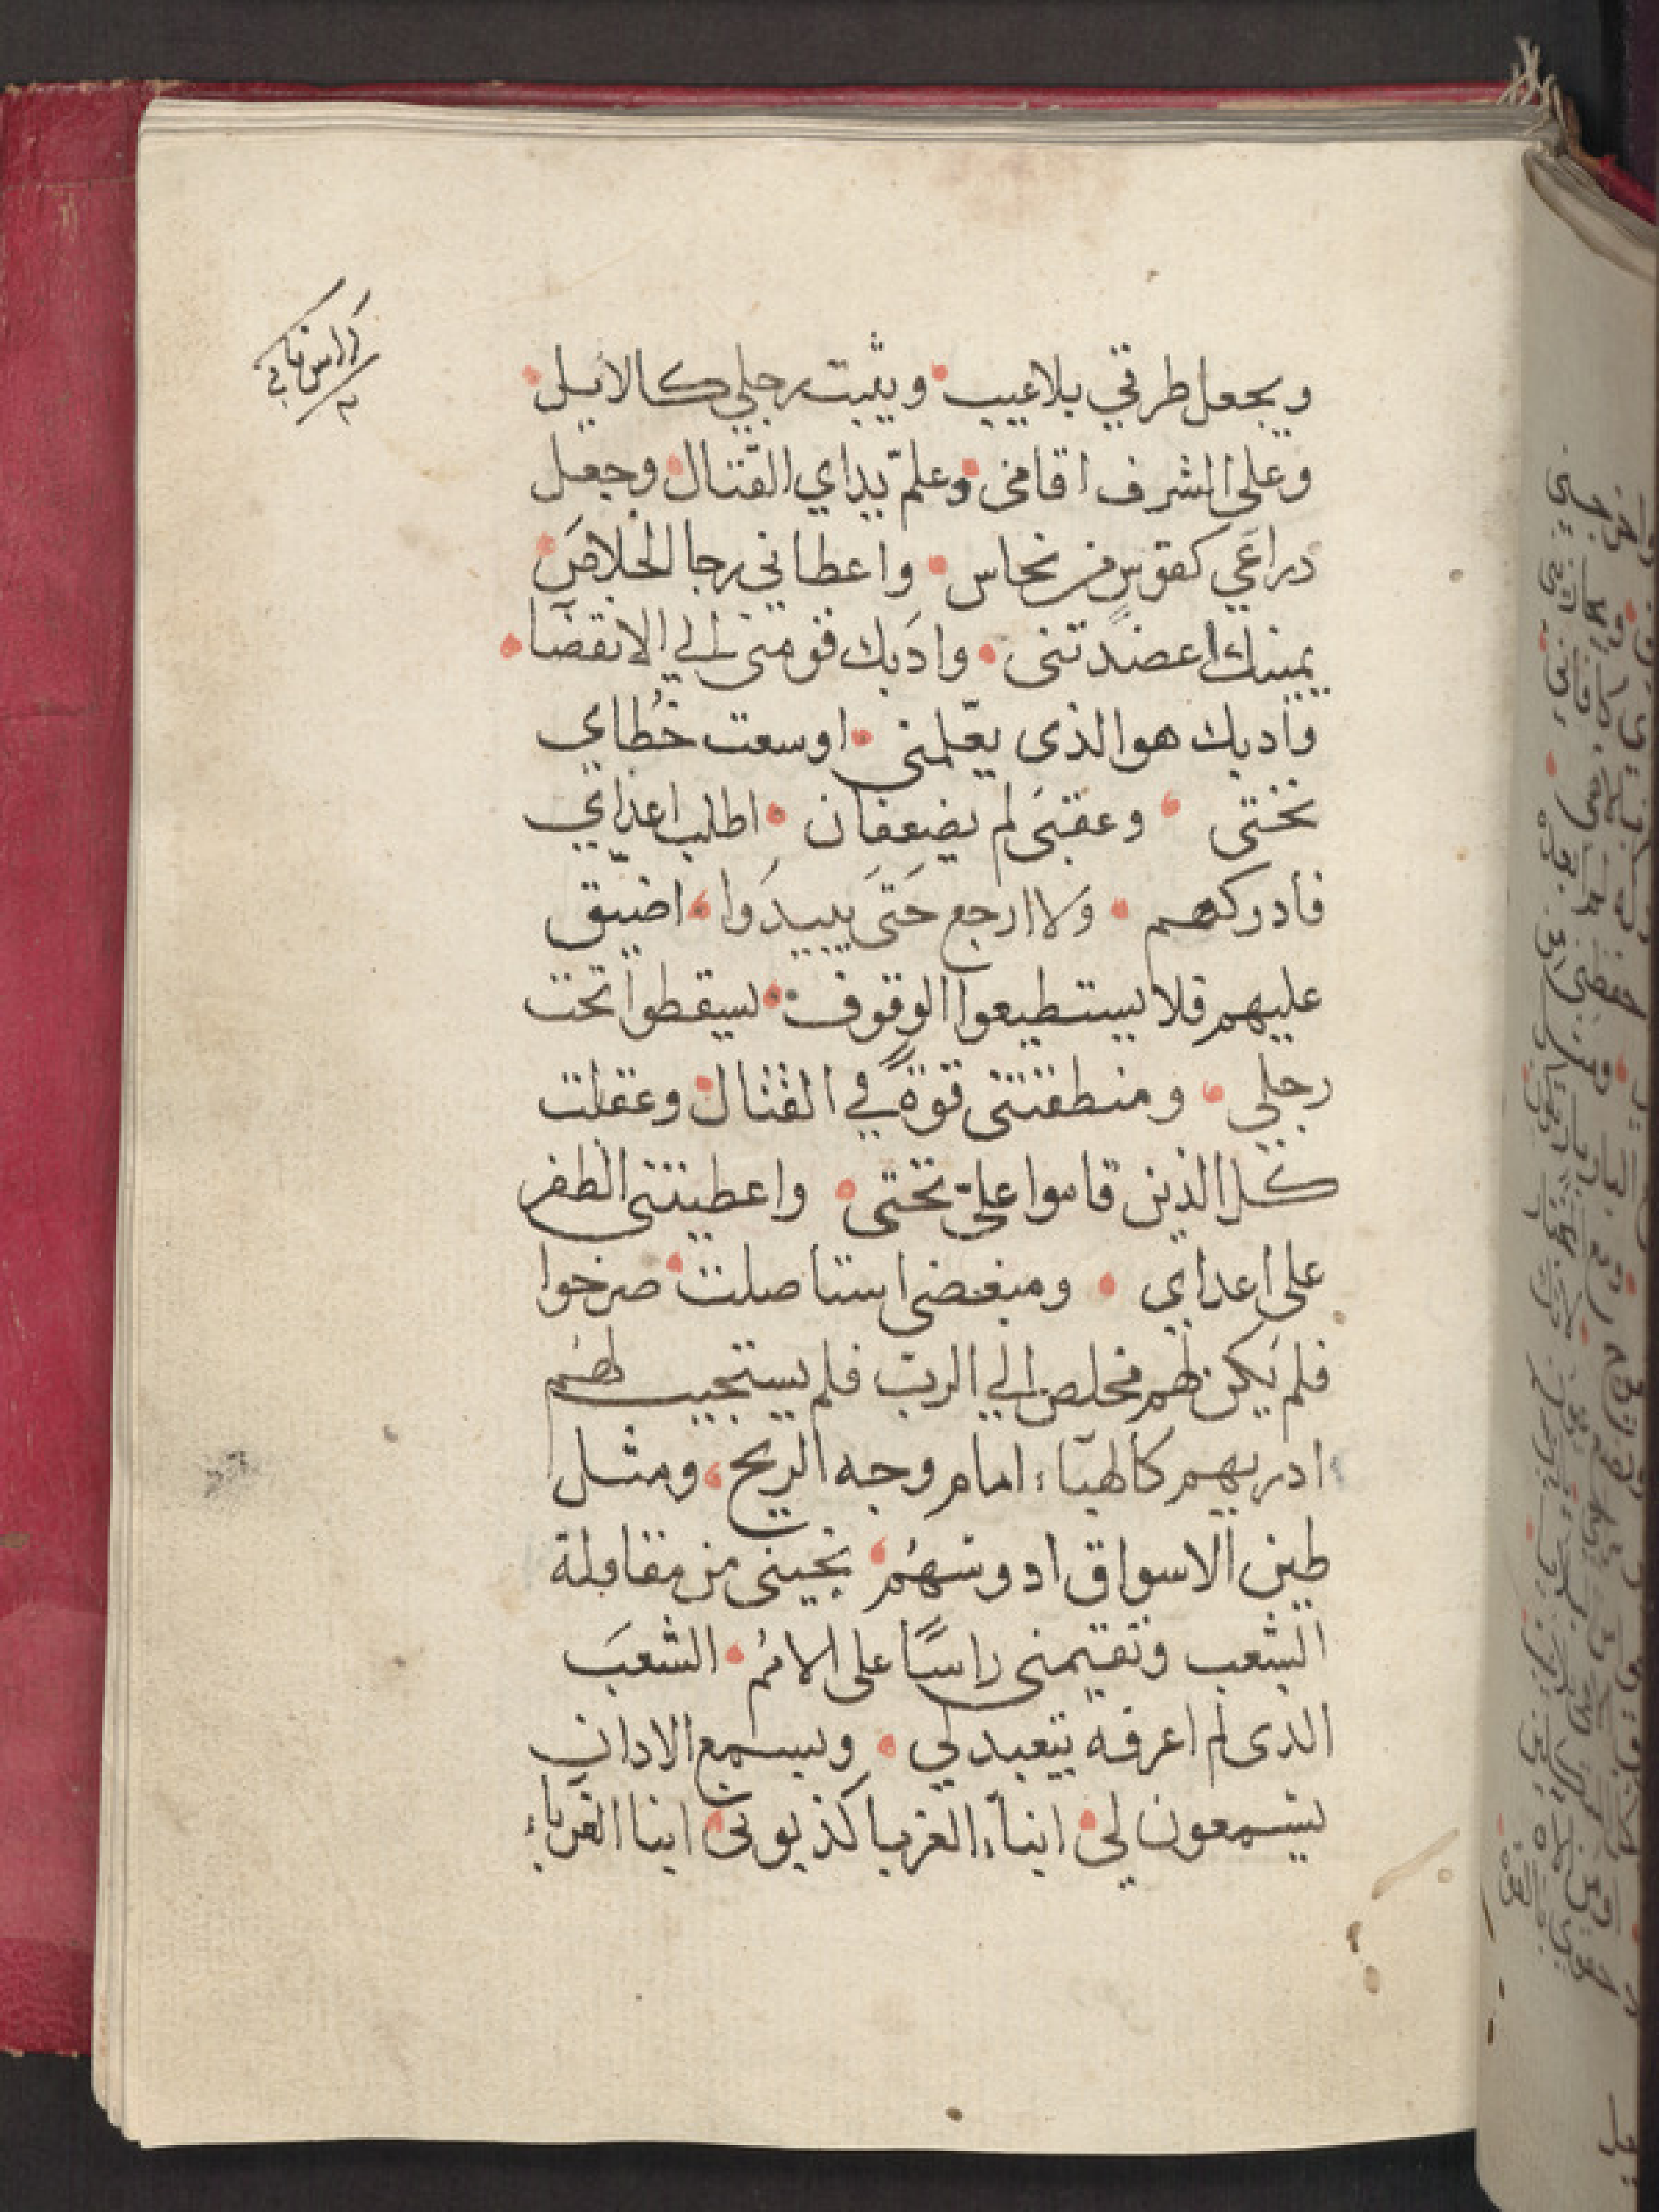 كراس ثاني
٢
ويجعل طرقي بلا عيب • ويثبت رجلي كالايل •
وعلى الشرف اقامني • وعلّم يداي القتال • وجعل
دراعَي كقوسٍ من نحاس • واعطاني رجا الخلاصَ •
يمينك اعضدتني • وادَبك قومني الي الانقضآ •
وادبك هو الذى يعّلمني • اوسعت خُطاي
تختى • وعقبَى لم يضعفان • اطلب اعداي
فادركهم • وَلا ارجع حَتىَ يبيدَوا • اضيّق
عليهم فلا يستطيعوا الوقوف • يسقطوا تحت
رجلي • ومنطقتنى قوةً في القتال • وعقلت
كل الذين قاموا عليّ تختى • واعطيتنى الظفر
على اعداي • ومبغضى استاصلت • صرخوا
فلم يَكن لهم مخلص الي الربّ فلم يستجيب لهم
ادريهم كالهبآء امام وجه الريح • ومثل
طين الاسواق ادوسهُم • نجينى من مقاولة
الشعب وتقيمنى راسًا على الامُم • الشعبَ
الذى لم اعرفه يتعبد لي • وبسمع الادان
يسمعون لي • ابنآء الغربا كذبونى • ابنا الغربآء